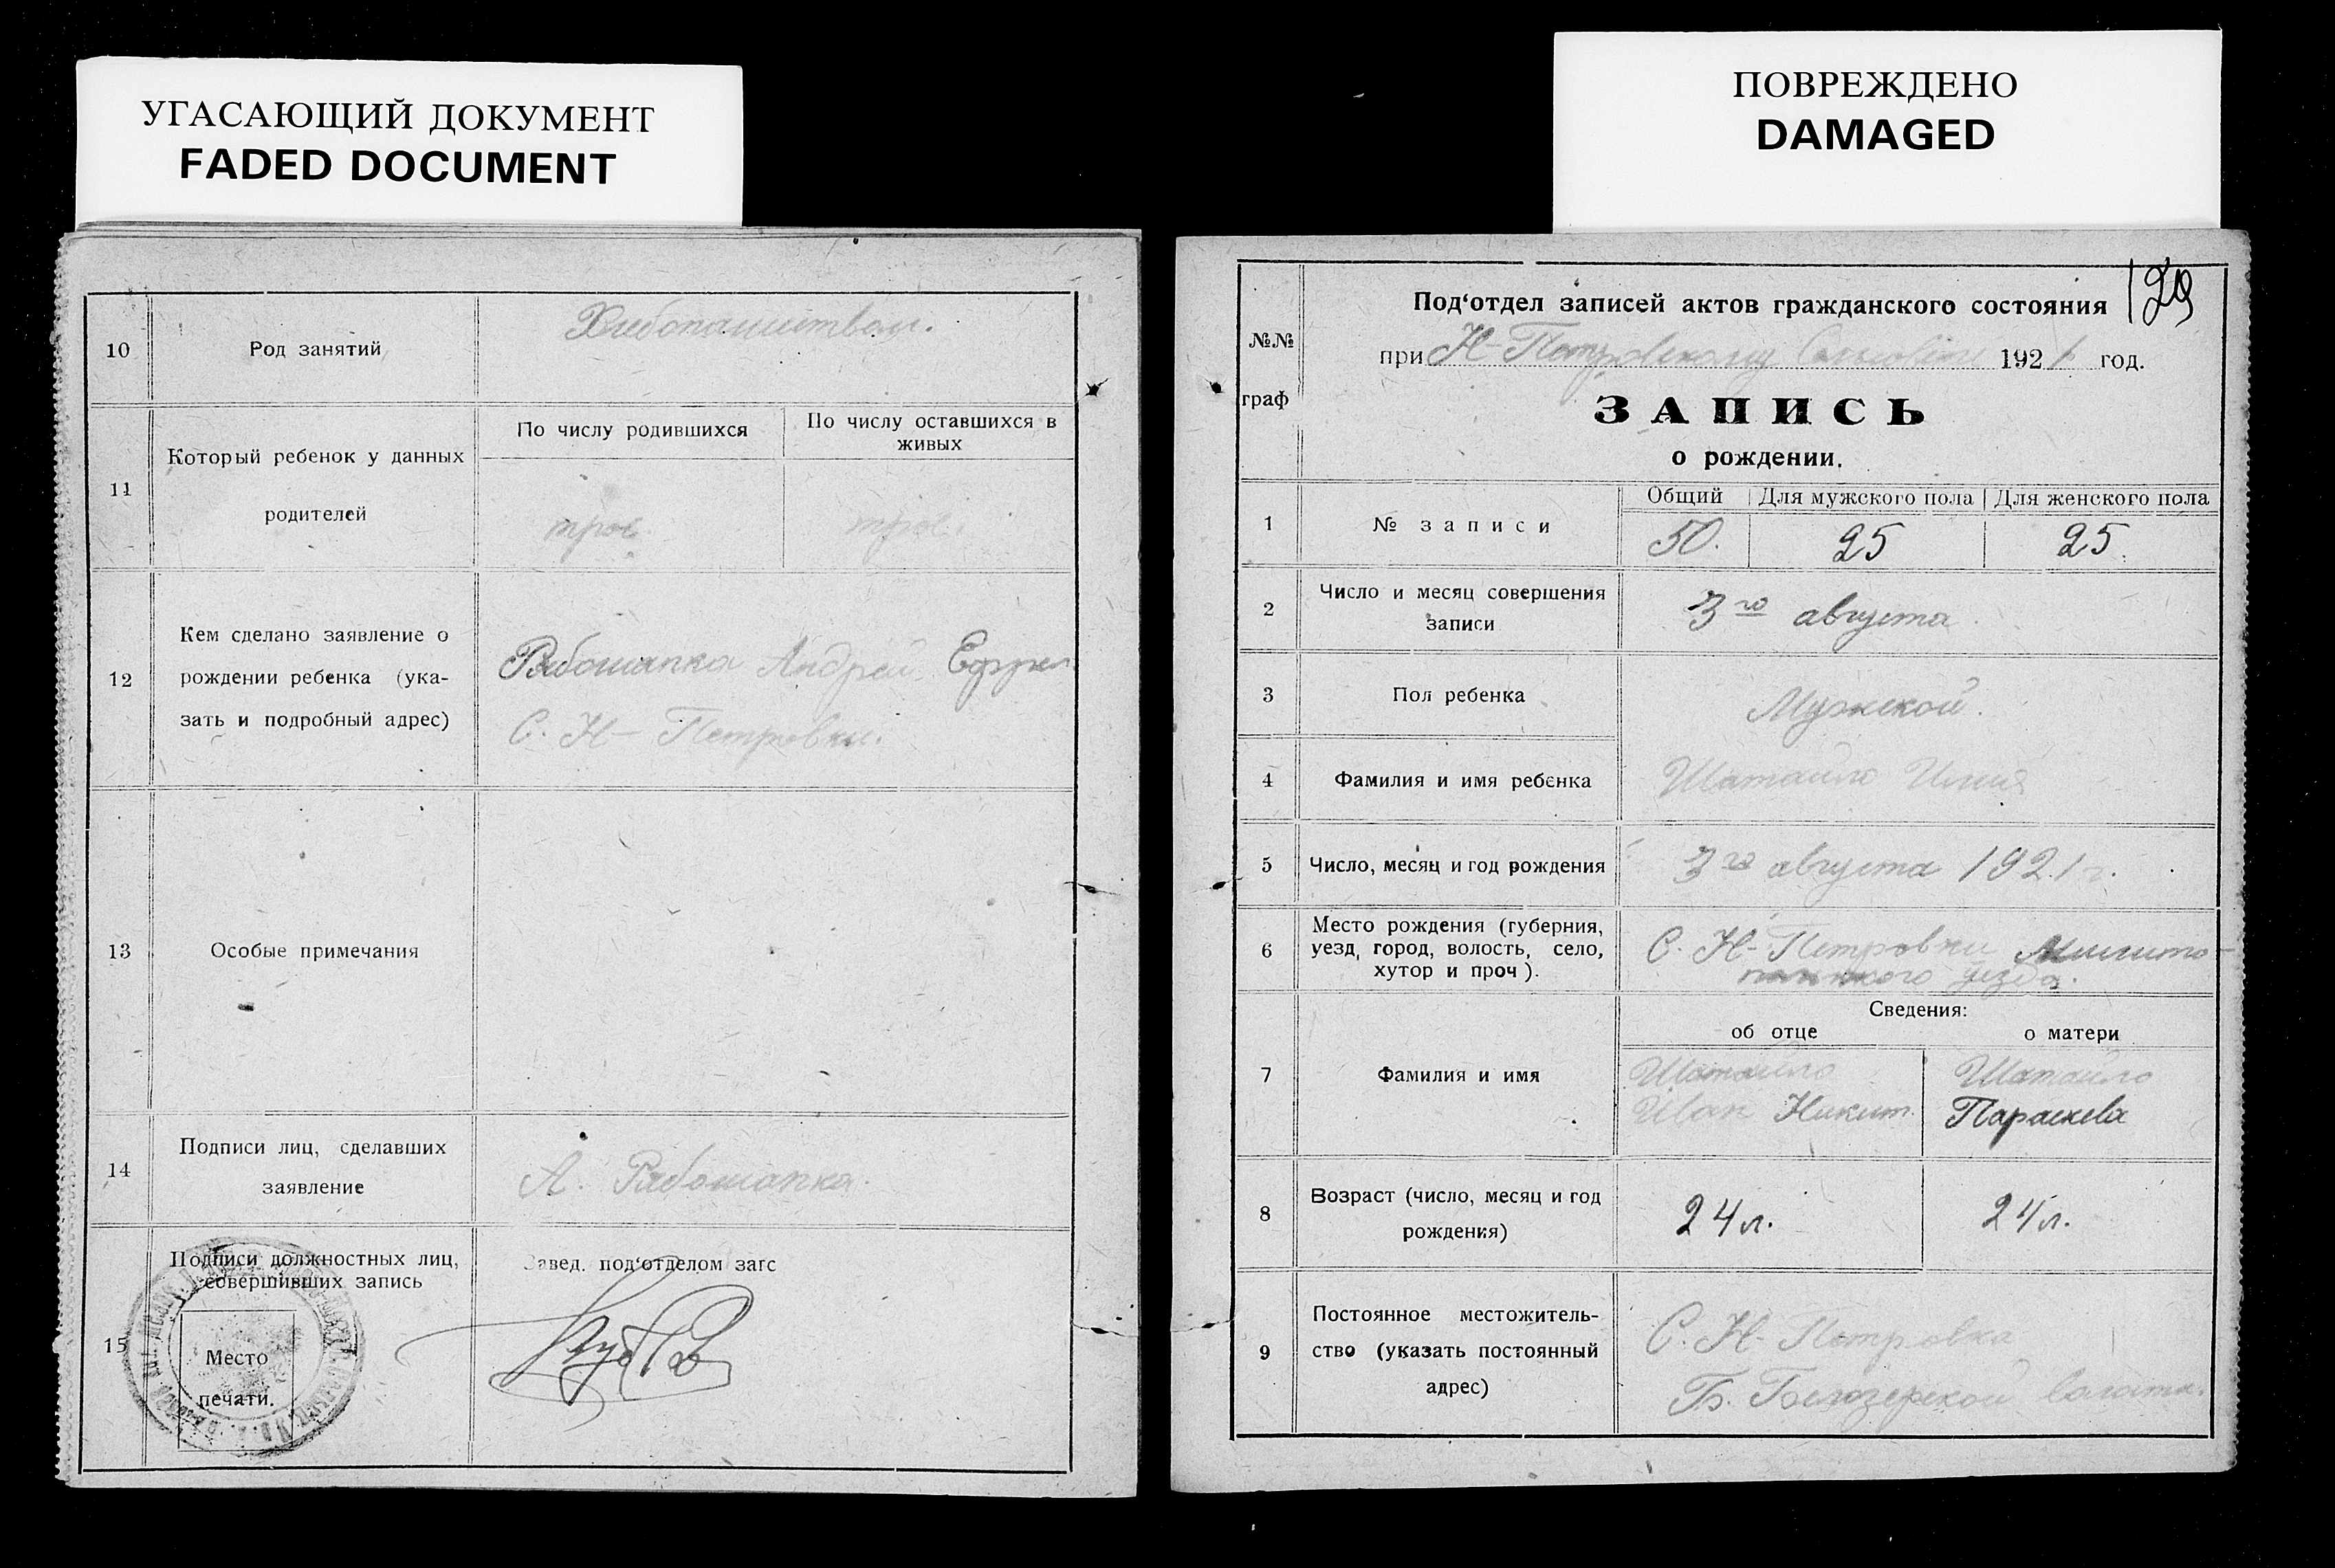 УГАСАЮЩИЙ ДОКУМЕНТ
FADED DOCUMENT
ПОВРЕЖДЕНО
DAMAGED
10
Род занятий
Хлебопашеством.
11
Который ребенок у данных
родителей
По числу родившихся
По числу оставшихся в
живых
трое.
трое.
12
Кем сделано заявление о
рождении ребенка (ука-
зать и подробный адрес)
Рябошапка Андрей Ефрем
С. Н-Петровки.
13
Особые примечания
14
Подписи лиц, сделавших
заявление
А. Рябошапка.
15
Подписи должностных лиц,
совершивших запись
Место
печати.
Завед. под‘отделом загс
129
№№
граф
Под‘отдел записей актов гражданского состояния
при Н-Петровскому 1921 год.
ЗАПИСЬ
о рождении.
1
№ записи
Общий
Для мужского пола
Для женского пола
50.
25
25.
2
Число и месяц совершения
записи
3го августа.
3
Пол ребенка
Мужской.
4
Фамилия и имя ребенка
Шатайло Илия
5
Число, месяц и год рождения
3го августа 1921 г.
6
Место рождения (губерния,
уезд, город, волость, село,
хутор и проч).
С. Н-Петровки Мелито-
польского уезда.
Сведения:
об отце
о матери
7
Фамилия и имя
Шатайло
Иван Никит.
Шатайло
Параскева
8
Возраст (число, месяц и год
рождения)
24 л.
24 л.
9
Постоянное местожитель-
ство (указать постоянный
адрес)
С. Н-Петровка
Б. Белозерской Волости.